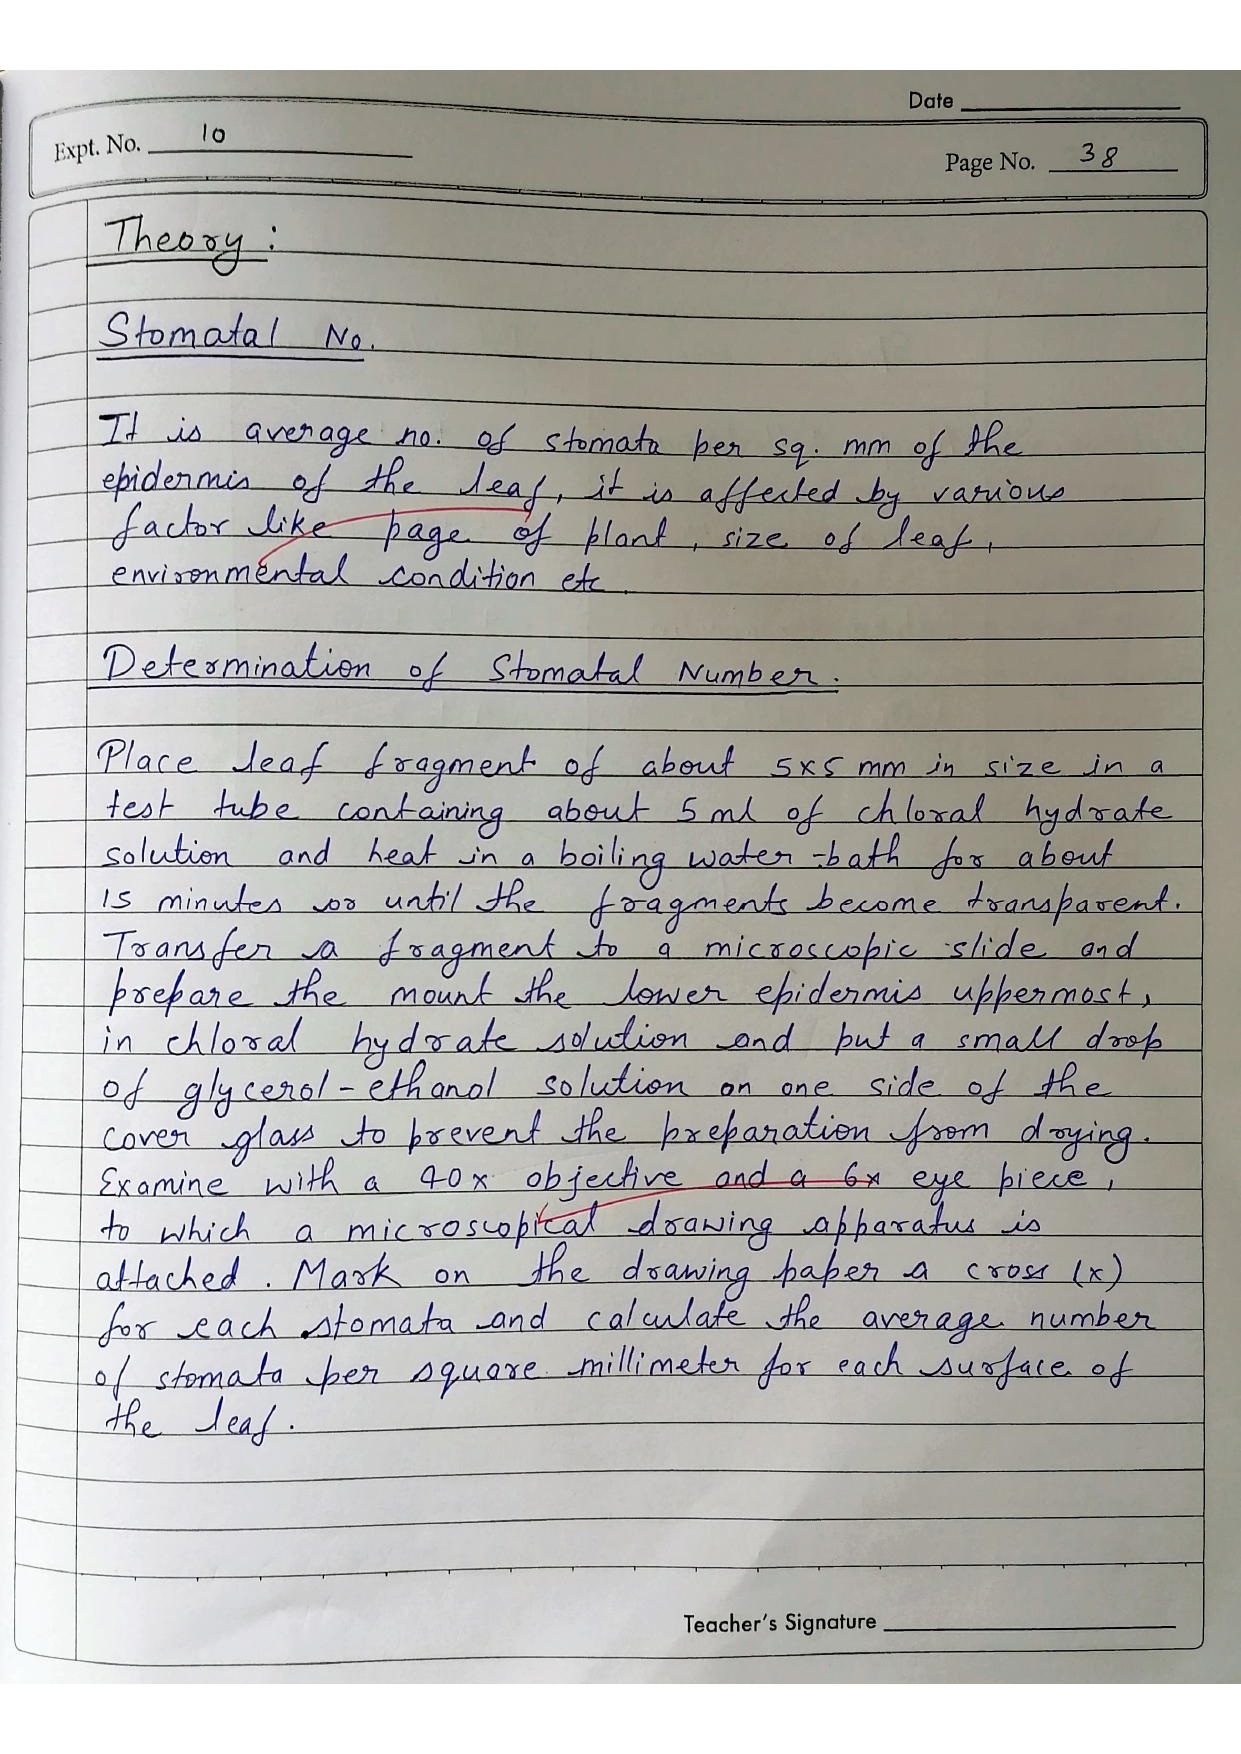 Date
Expt. No. 10
Page No. 38
Theory :
Stomatal No.
It is average no. of stomata per sq. mm of the
epidermis of the leaf, it is affected by various
factor like page of plant, size of leaf,
environmental condition etc.
Determination of Stomatal Number.
Place leaf fragment of about 5x5 mm in size in a
test tube containing about 5 ml of chloral hydrate
solution and heat in a boiling water-bath for about
15 minutes or until the fragments become transparent.
Transfer a fragment to a microscopic slide and
prepare the mount the lower epidermis uppermost,
in chloral hydrate solution and put a small drop
of glycerol-ethanol solution on one side of the
cover glass to prevent the preparation from drying.
Examine with a 40x objective and a 6x eye piece,
to which a microscopical drawing apparatus is
attached. Mark on the drawing paper a cross (x)
for each stomata and calculate the average number
of stomata per square millimeter for each surface of
the leaf.
Teacher's Signature